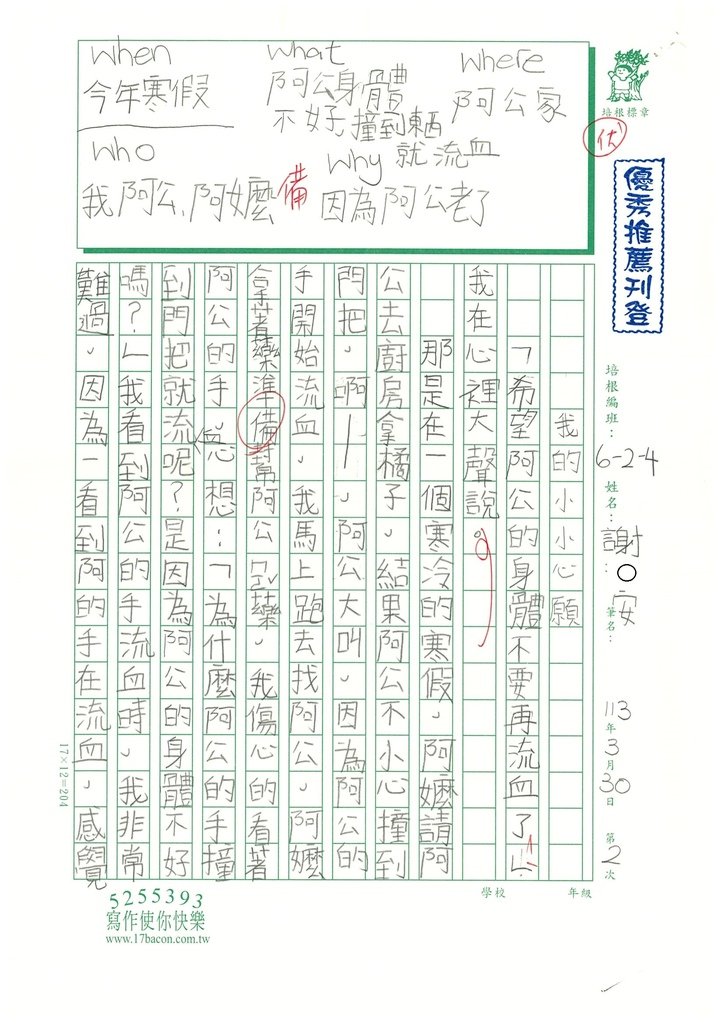 when
今年寒假
what
阿公身體
不好,撞到東西
就流血
where
阿公家
who
我阿公、阿嬤
備
why
因為阿公老了
培根標章
優
優秀推薦刊登
培根編班：6-2-4
姓名：謝○安
筆名：
113年3月30日 第2次
學校 年級
我的小小心願
「希望阿公的身體不要再流血了!」
我在心裡大聲說。
那是在一個寒冷的寒假，阿嬤請阿
公去廚房拿橘子，結果阿公不小心撞到
門把，啊—，阿公大叫，因為阿公的
手開始流血，我馬上跑去找阿公，阿嬤
拿著藥準備幫阿公ㄘㄚ藥，我傷心的看著
阿公的手，心想：「為什麼阿公的手撞
到門把就流血呢？是因為阿公的身體不好
嗎？」我看到阿公的手流血時，我非常
難過，因為一看到阿的手在流血，感覺
17×12=204
5255393
寫作使你快樂
www.17bacon.com.tw